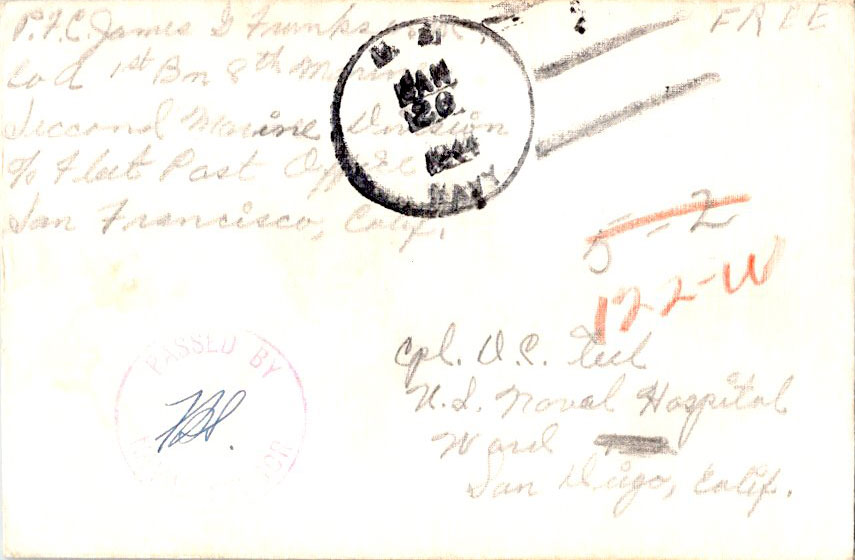 P.F.C. James G Funks U.S.M.C.,
Co A 1st Bn 8th Marines
Second Marine Division
c/o Fleet Post Office
San Francisco, Calif.
FREE
U. S.
JAN
20
1944
NAVY
5-2
122-W
PASSED BY
Cpl. D.C.
U.S. Naval Hospital
Ward
San Diego, Calif.